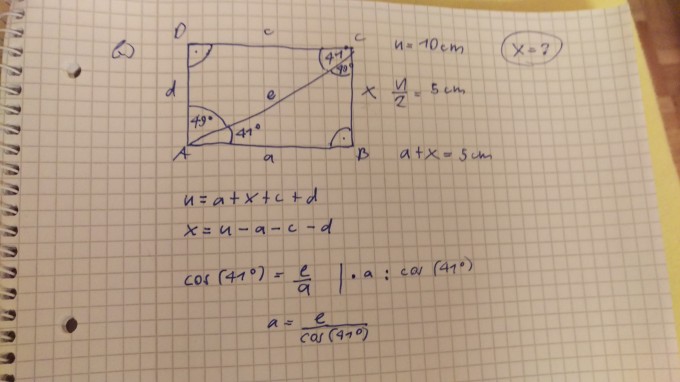 D c C
41°
d e x
49° 41°
A a B
u = 10cm
x = ?
u/2 = 5cm
a + x = 5cm
u = a + x + c + d
x = u - a - c - d
cos(41°) = e/a | · a : cos(41°)
a = e/cos(41°)